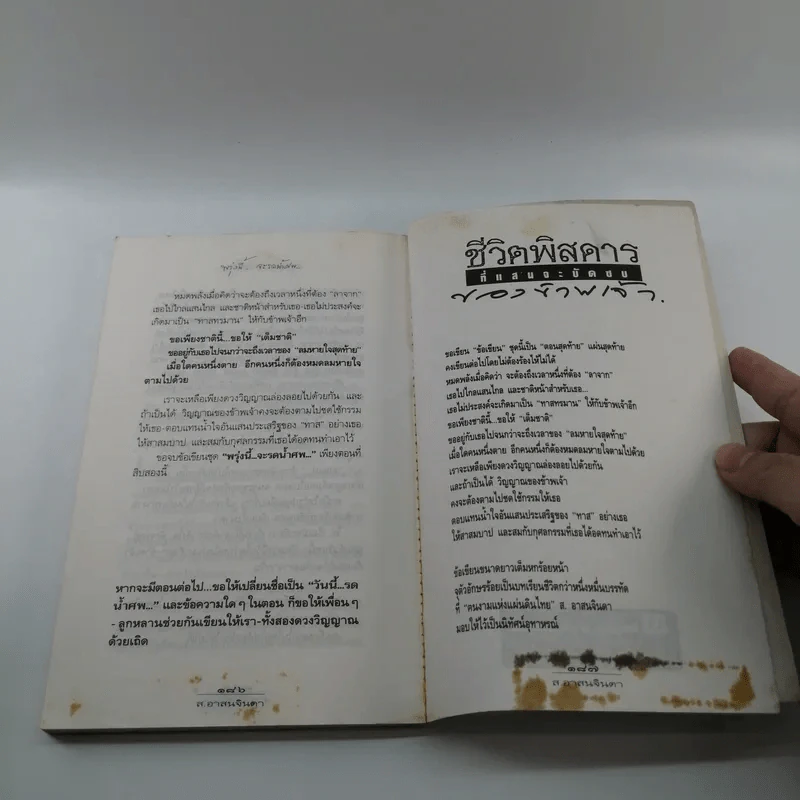 พรุ่งนี้...จะรดน้ำศพ...
หมดพลังเมื่อคิดว่าจะต้องถึงเวลาหนึ่งที่ต้อง "ลาจาก"
เธอไปไกลแสนไกล และชาติหน้าสำหรับเธอ-เธอไม่ประสงค์จะ
เกิดมาเป็น "ทาสทรมาน" ให้กับข้าพเจ้าอีก
ขอเพียงชาตินี้...ขอให้ "เต็มชาติ"
ขออยู่กับเธอไปจนกว่าจะถึงเวลาของ "ลมหายใจสุดท้าย"
เมื่อใดคนหนึ่งตาย อีกคนหนึ่งก็ต้องหมดลมหายใจ
ตามไปด้วย
เราจะเหลือเพียงดวงวิญญาณล่องลอยไปด้วยกัน และ
ถ้าเป็นได้ วิญญาณของข้าพเจ้าคงจะต้องตามไปชดใช้กรรม
ให้เธอ-ตอบแทนน้ำใจอันแสนประเสริฐของ "ทาส" อย่างเธอ
ให้สาสมบาป และสมกับกุศลกรรมที่เธอได้อดทนทำเอาไว้
ขอจบข้อเขียนชุด "พรุ่งนี้...จะรดน้ำศพ..." เพียงตอนที่
สิบสองนี้
หากจะมีตอนต่อไป...ขอให้เปลี่ยนชื่อเป็น "วันนี้...รด
น้ำศพ..." และข้อความใด ๆ ในตอน ก็ขอให้เพื่อน ๆ
- ลูกหลานช่วยกันเขียนให้เรา-ทั้งสองดวงวิญญาณ
ด้วยเถิด
๑๘๖
ส.อาสนจินดา
ชีวิตพิสดาร
ที่แสนจะบัดซบ
ของข้าพเจ้า.
ขอเขียน "ข้อเขียน" ชุดนี้เป็น "ตอนสุดท้าย" แผ่นสุดท้าย
คงเขียนต่อไปโดยไม่ต้องร้องไห้ไม่ได้
หมดพลังเมื่อคิดว่า จะต้องถึงเวลาหนึ่งที่ต้อง "ลาจาก"
เธอไปไกลแสนไกล และชาติหน้าสำหรับเธอ...
เธอไม่ประสงค์จะเกิดมาเป็น "ทาสทรมาน" ให้กับข้าพเจ้าอีก
ขอเพียงชาตินี้...ขอให้ "เต็มชาติ"
ขออยู่กับเธอไปจนกว่าจะถึงเวลาของ "ลมหายใจสุดท้าย"
เมื่อใดคนหนึ่งตาย อีกคนหนึ่งก็ต้องหมดลมหายใจตามไปด้วย
เราจะเหลือเพียงดวงวิญญาณล่องลอยไปด้วยกัน
และถ้าเป็นได้ วิญญาณของข้าพเจ้า
คงจะต้องตามไปชดใช้กรรมให้เธอ
ตอบแทนน้ำใจอันแสนประเสริฐของ "ทาส" อย่างเธอ
ให้สาสมบาป และสมกับกุศลกรรมที่เธอได้อดทนทำเอาไว้
ข้อเขียนขนาดยาวเต็มหกร้อยหน้า
จุตัวอักษรร้อยเป็นบทเรียนชีวิตกว่าหนึ่งหมื่นบรรทัด
ที่ "คนงามแห่งแผ่นดินไทย" ส. อาสนจินดา
มอบให้ไว้เป็นนิทัศน์อุทาหรณ์
๑๘๗
ส.อาสนจินดา